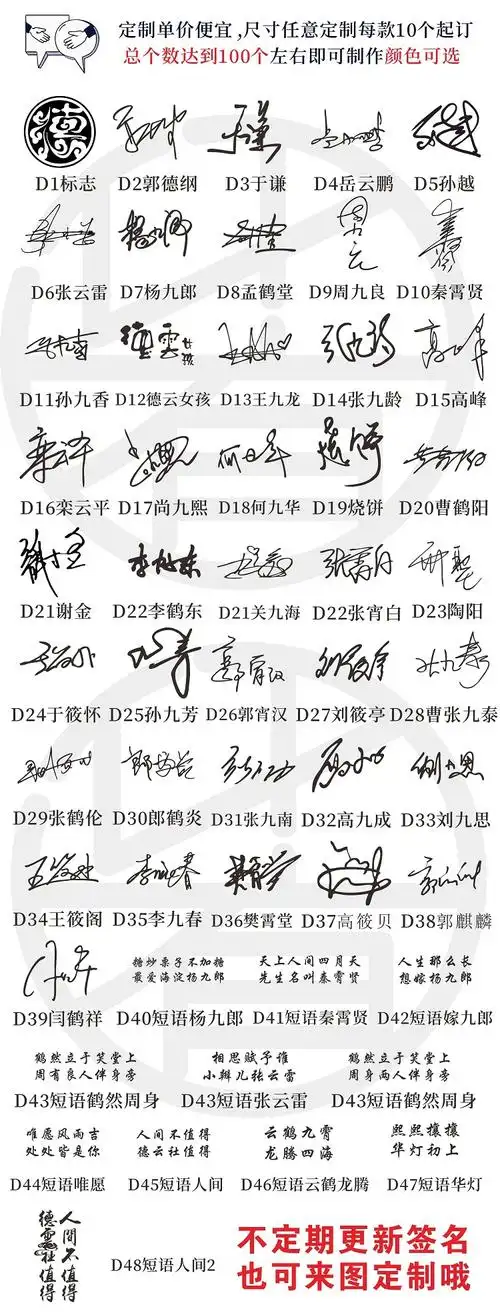 定制单价便宜,尺寸任意定制每款10个起订
总个数达到100个左右即可制作颜色可选
德
D1标志 D2郭德纲 D3于谦 D4岳云鹏 D5孙越
D6张云雷 D7杨九郎 D8孟鹤堂 D9周九良 D10秦霄贤
德雲女孩
D11孙九香 D12德云女孩 D13王九龙 D14张九龄 D15高峰
D16栾云平 D17尚九熙 D18何九华 D19烧饼 D20曹鹤阳
D21谢金 D22李鹤东 D21关九海 D22张宵白 D23陶阳
D24于筱怀 D25孙九芳 D26郭宵汉 D27刘筱亭 D28曹张九泰
D29张鹤伦 D30郎鹤炎 D31张九南 D32高九成 D33刘九思
D34王筱阁 D35李九春 D36樊霄堂 D37高筱贝 D38郭麒麟
糖炒栗子不加糖 天上人间四月天 人生那么长
最爱海淀杨九郎 先生名叫秦霄贤 想嫁杨九郎
D39闫鹤祥 D40短语杨九郎 D41短语秦霄贤 D42短语嫁九郎
鹤然立于笑堂上 相思赋予谁 鹤然立于笑堂上
周有良人伴身旁 小辫儿张云雷 周身两人伴身旁
D43短语鹤然周身 D43短语张云雷 D43短语鹤然周身
唯愿风雨吉 人间不值得 云鹤九霄 熙熙攘攘
处处皆是你 德云社值得 龙腾四海 华灯初上
D44短语唯愿 D45短语人间 D46短语云鹤龙腾 D47短语华灯
人间不值得
德雲社值得
D48短语人间2
不定期更新签名
也可来图定制哦